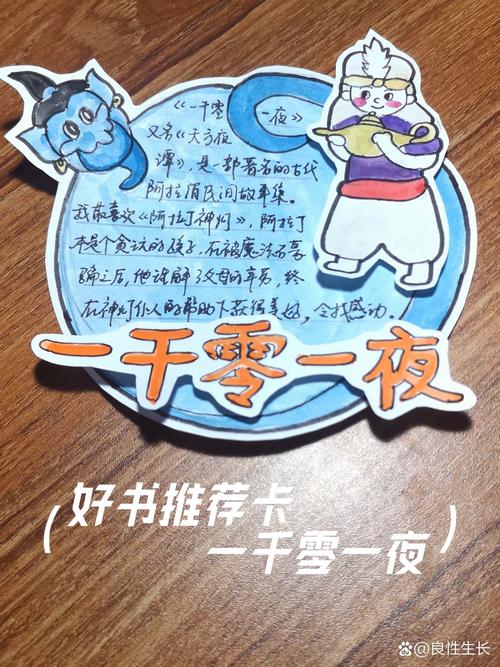 《一千零一夜》
又名《天方夜
谭》，是一部著名的古代
阿拉伯民间故事集。
我最喜欢《阿拉丁神灯》，阿拉丁
本是个贪玩的孩子，在被魔法师蒙
骗之后，他理解了父母的辛劳，终
在神灯仆人的帮助下获得幸福，令我感动。
一千零一夜
（好书推荐卡
一千零一夜）
@良性生长